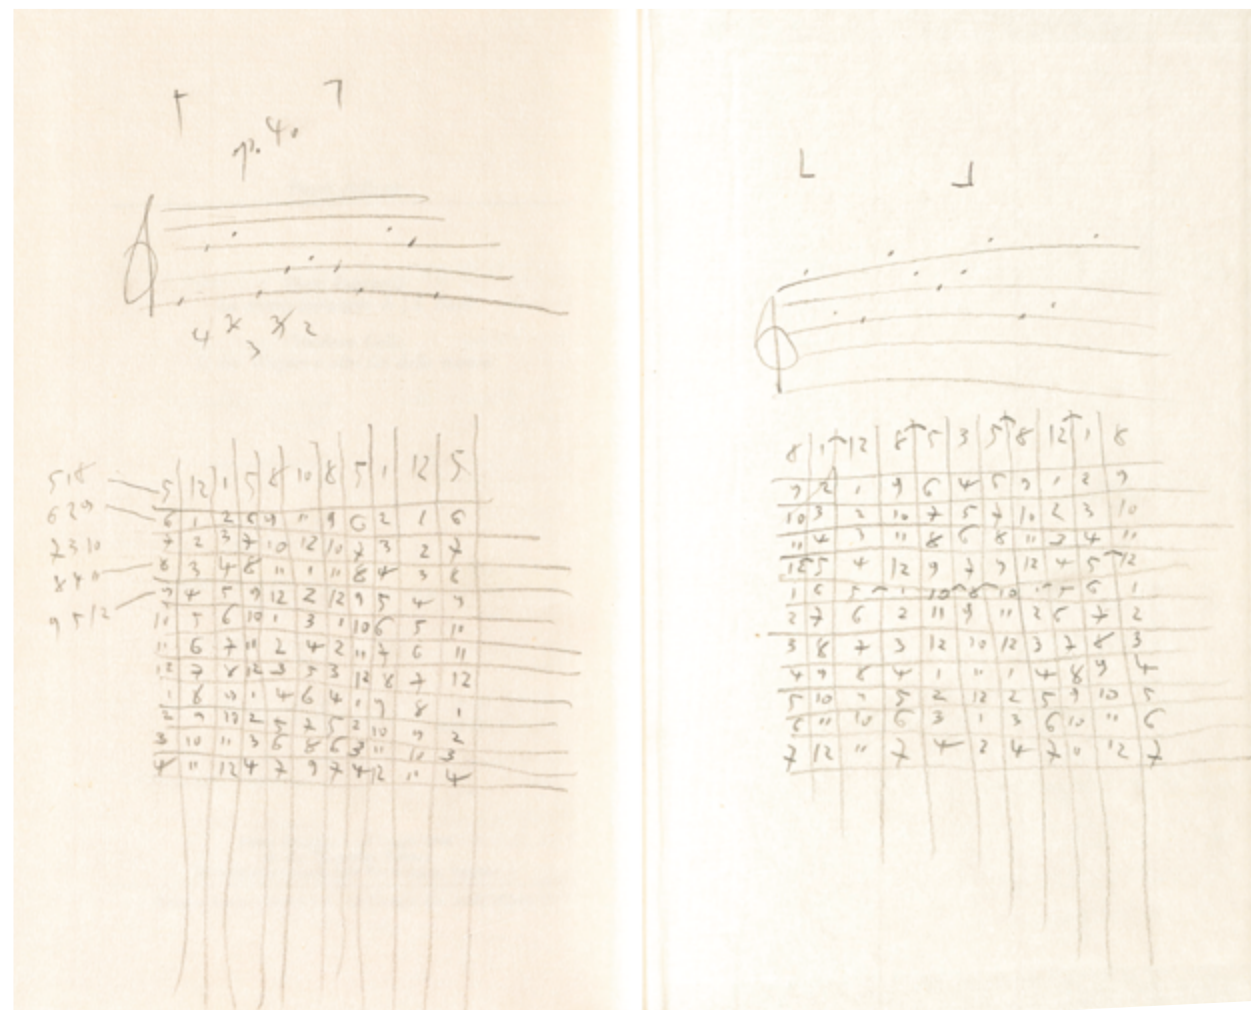 p. 4.
4 3 2
5 1 8
6 2 9
7 3 10
8 4 11
9 5 12
5 12 1 5 8 10 8 5 1 12 5
6 1 2 6 9 11 9 6 2 1 6
7 2 3 7 10 12 10 7 3 2 7
8 3 4 8 11 1 11 8 4 3 8
9 4 5 9 12 2 12 9 5 4 9
10 5 6 10 1 3 1 10 6 5 10
11 6 7 11 2 4 2 11 7 6 11
12 7 8 12 3 5 3 12 8 7 12
1 8 9 1 4 6 4 1 9 8 1
2 9 10 2 5 7 5 2 10 9 2
3 10 11 3 6 8 6 3 11 10 3
4 11 12 4 7 9 7 4 12 11 4
8 1 12 8 5 3 5 8 12 1 8
9 2 1 9 6 4 5 9 1 2 9
10 3 2 10 7 5 7 10 2 3 10
11 4 3 11 8 6 8 11 3 4 11
12 5 4 12 9 7 9 12 4 5 12
1 6 5 1 10 8 10 1 5 6 1
2 7 6 2 11 9 11 2 6 7 2
3 8 7 3 12 10 12 3 7 8 3
4 9 8 4 1 11 1 4 8 9 4
5 10 9 5 2 12 2 5 9 10 5
6 11 10 6 3 1 3 6 10 11 6
7 12 11 7 4 2 4 7 11 12 7